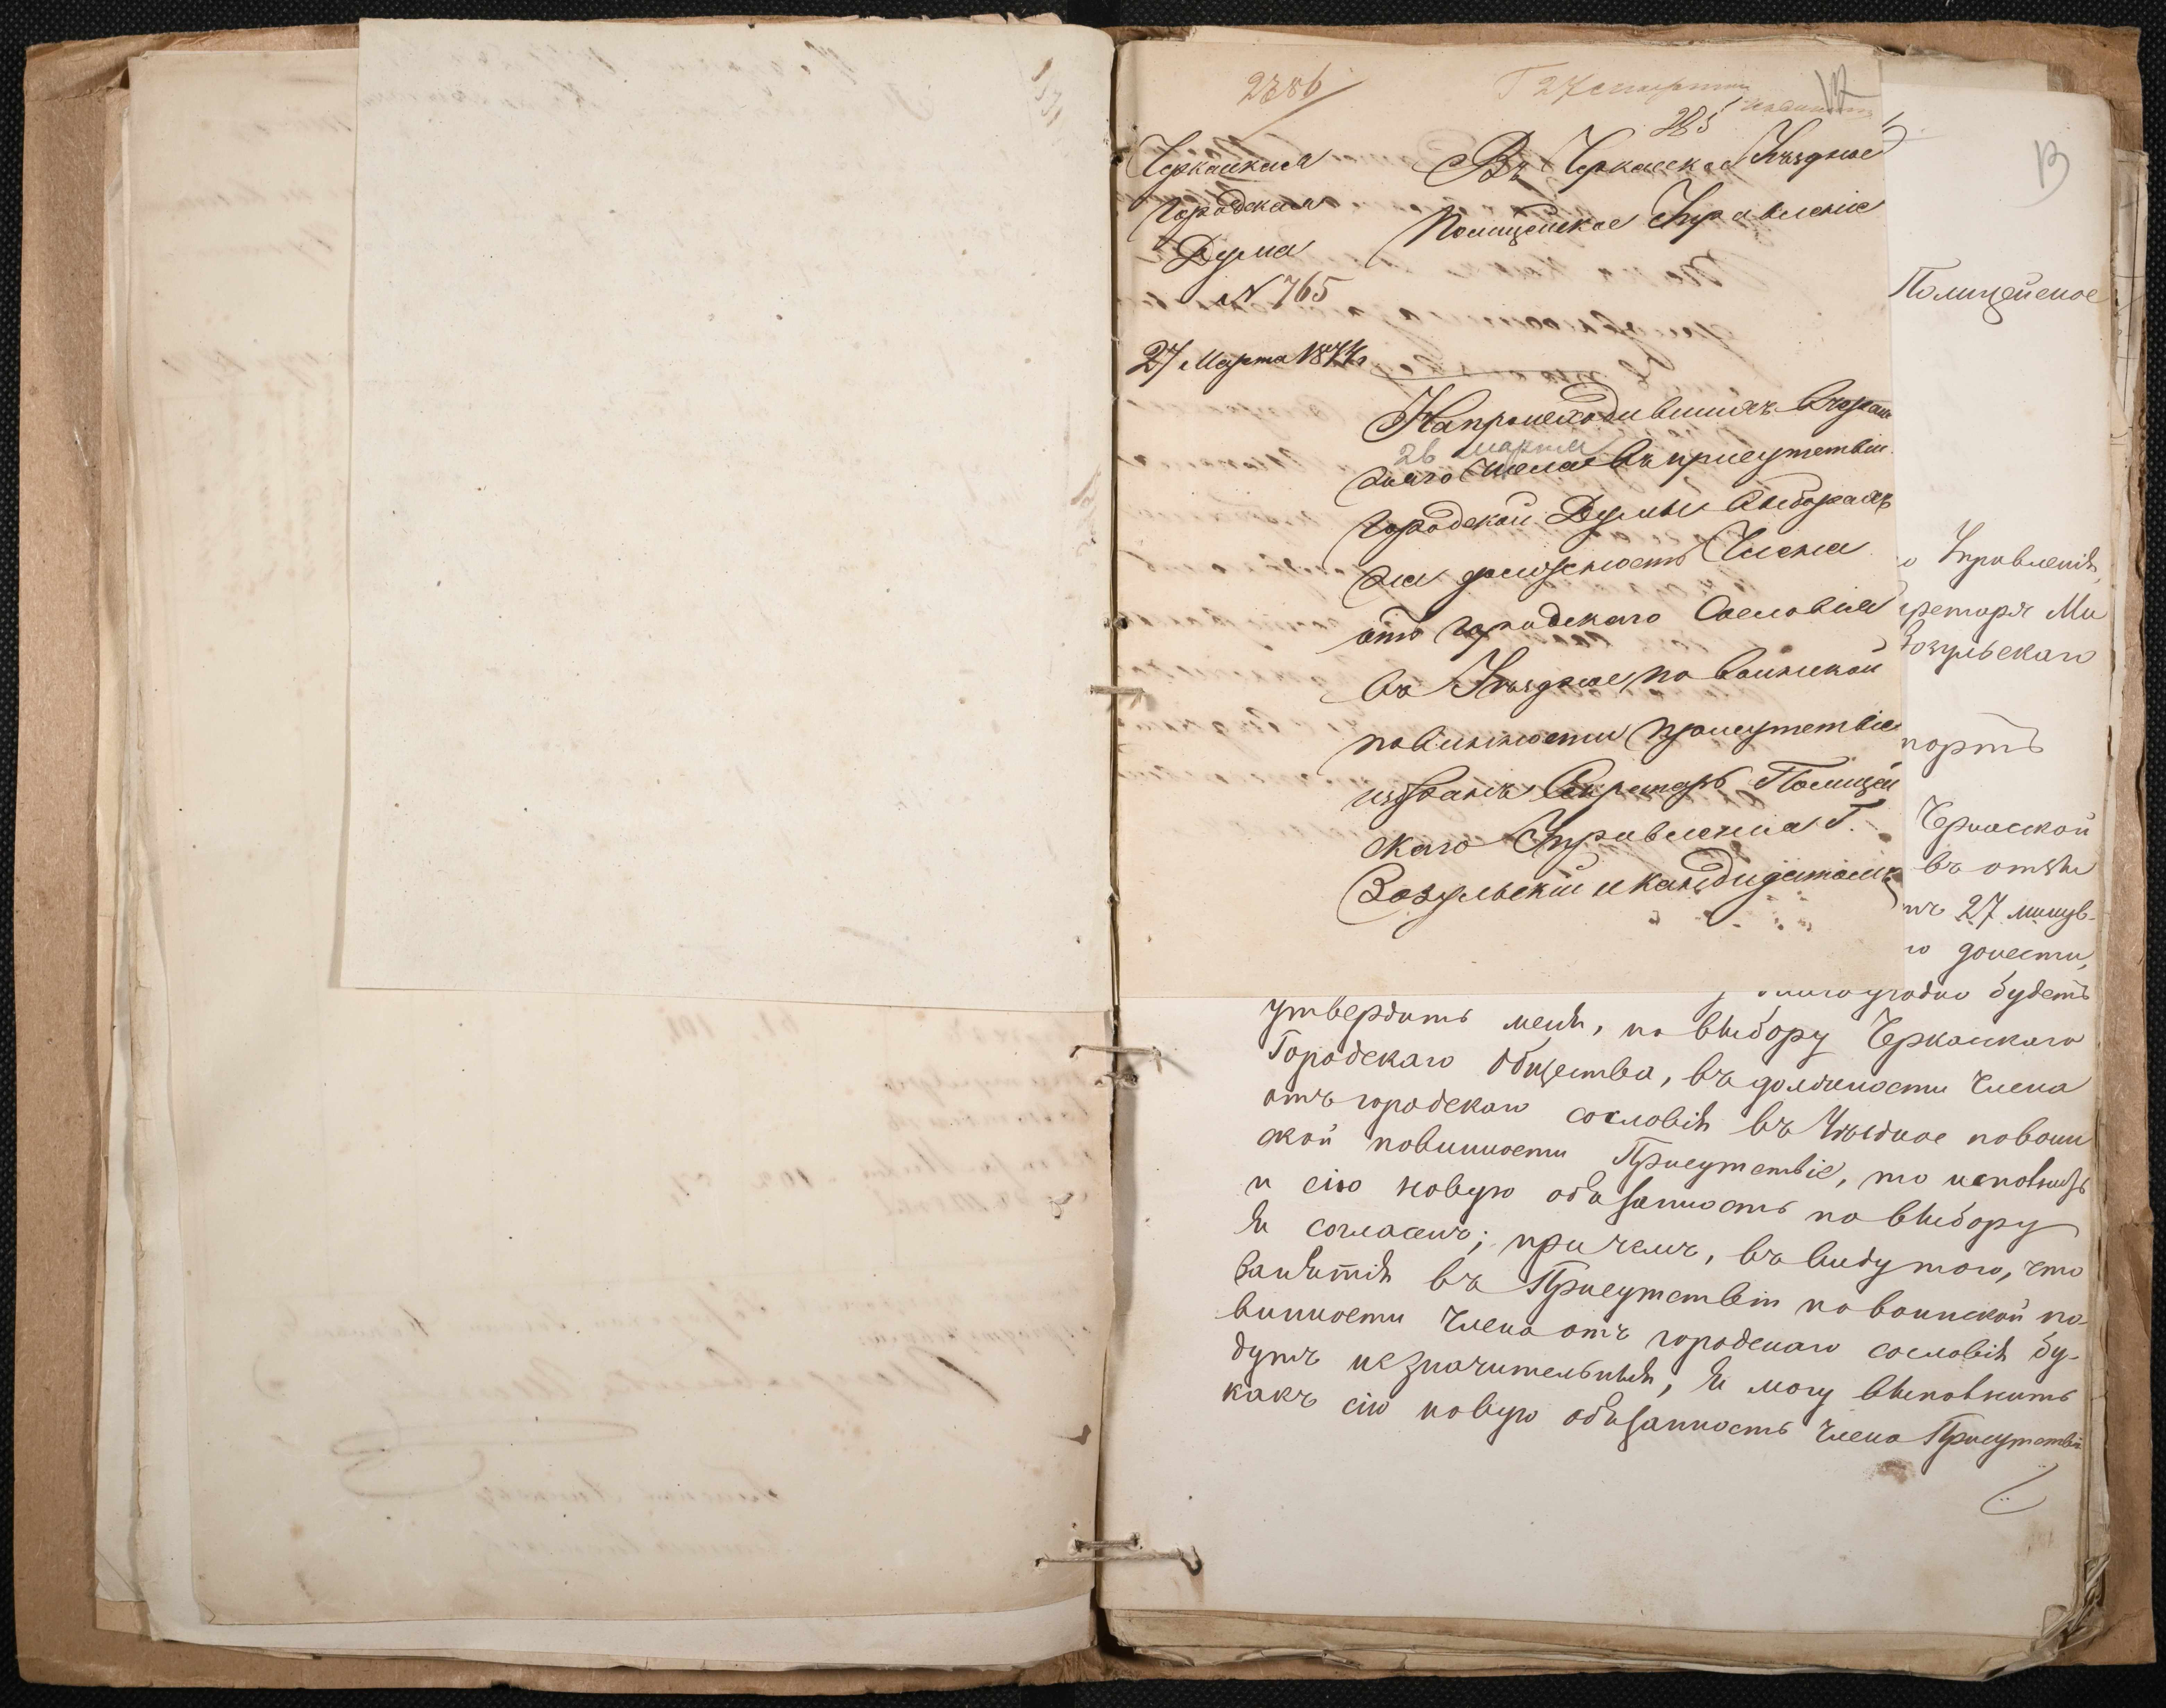 2386
12
285
Черкаская
городская
Дума
№ 765
27 Марта 1874 г
Въ Черкаское Уѣздное
Полицейское Управленіе
На происходившихъ
26 марта
сего числа въ присутствіи
городской Думы выборахъ
на должность Члена
отъ городскаго Сословія
въ Уѣздное по воинской
повинности присутствіе
избранъ Секретарь Полицей
скаго Управленія Г.
Зозульскій и кандидатомъ
13
Полицейское
Управленія,
кретаря Ми
Зозульскаго
портъ
Черкаской
въ отзы
27 минув-
донести,
будетъ
утвердить меня, по выбору Черкаскаго
Городскаго Общества, въ должности Члена
отъ городскаго сословія въ Уѣздное по воин
ской повинности Присутствіе, то исполнять
и сію новую обязанность по выбору
я согласенъ; при чемъ, въ виду того, что
занятія въ Присутствіи по воинской по
винности Члена отъ городскаго сословія бу-
дутъ незначительныя, я могу выполнить
какъ сію новую обязанность Члена Присутствія